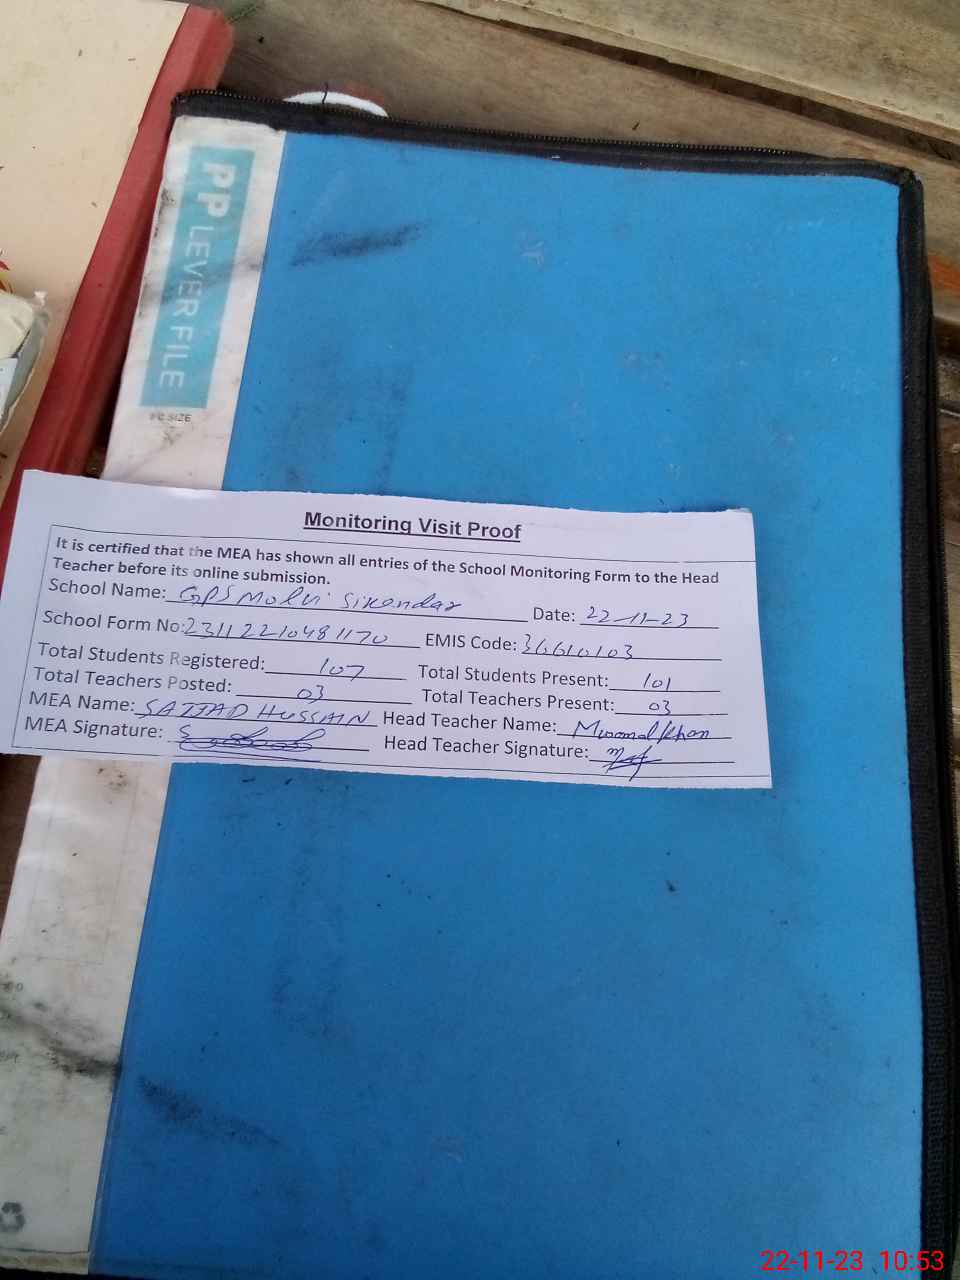 PP LEVER FILE
F/C SIZE
Monitoring Visit Proof
It is certified that the MEA has shown all entries of the School Monitoring Form to the Head
Teacher before its online submission.
School Name: GPS Molvi Sikendar Date: 22-11-23
School Form No: 23112210481170 EMIS Code: 36610103
Total Students Registered: 107 Total Students Present: 101
Total Teachers Posted: 03 Total Teachers Present: 03
MEA Name: SAJJAD HUSSAIN Head Teacher Name: Khan
MEA Signature: Head Teacher Signature:
22-11-23 10:53